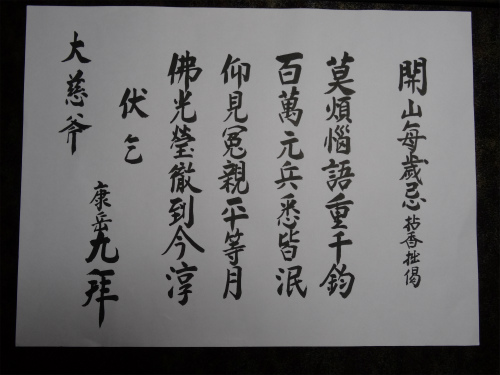 開山毎歳忌拈香拙偈
莫煩惱語重千鈞
百萬元兵悉皆泯
仰見冤親平等月
佛光瑩徹到今淳
伏乞
大慈斧
康岳九拜